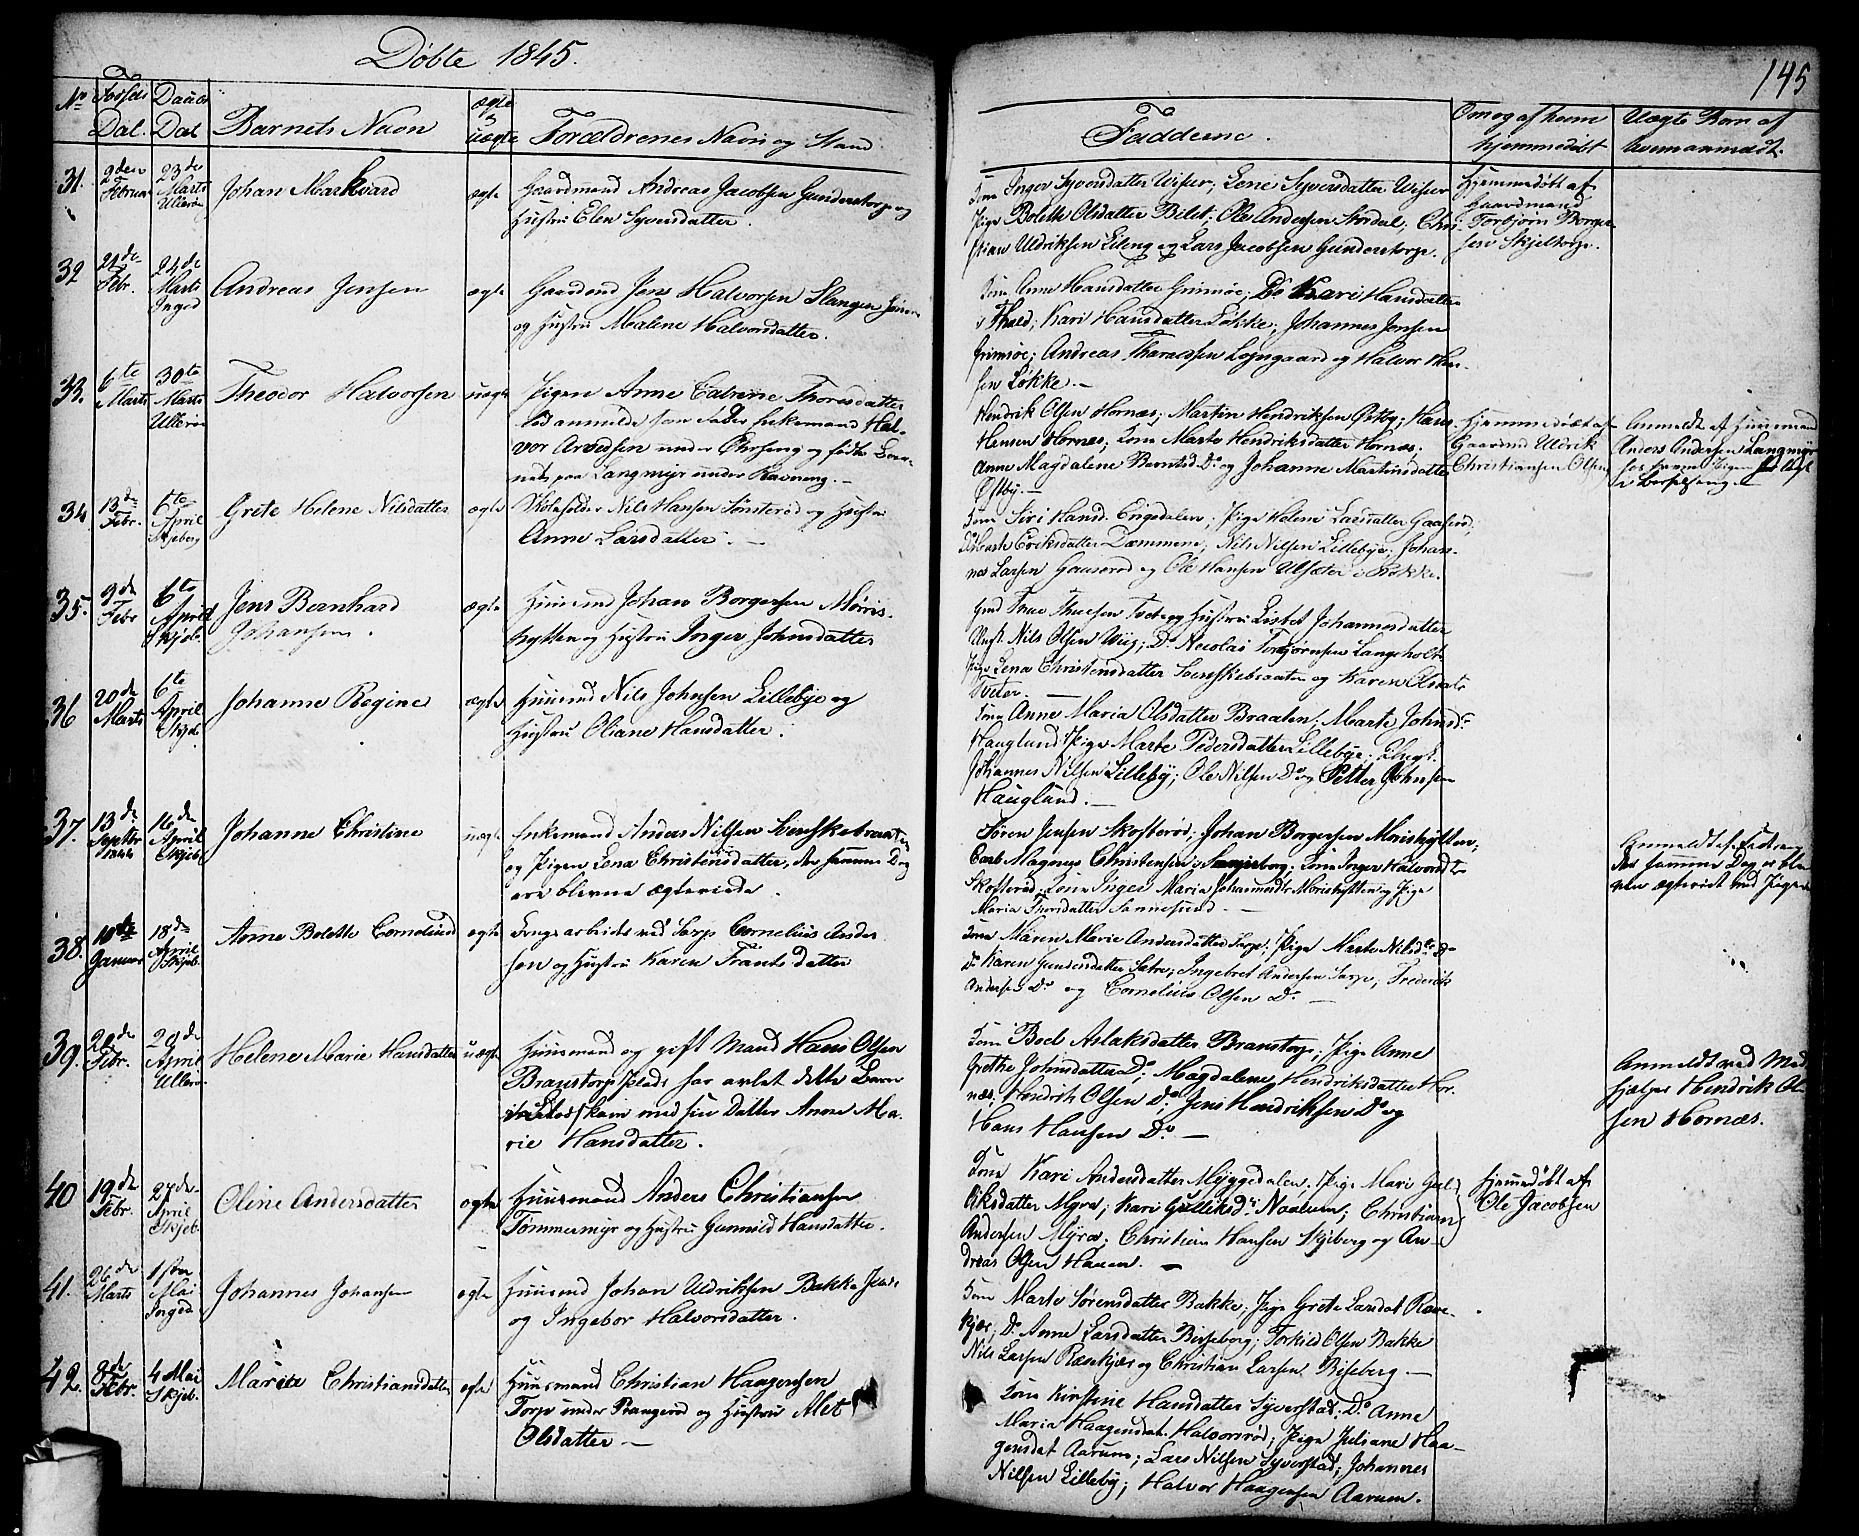 Døbte 1845.
145
No
Fødsels Dat.
Daabs Dat
Barnets Navn
ægte uægte
Forældrenes Navn og Stand
Fadderne.
Om og af hvem hjemmedøbt
Uægte Born af hvem anmeldt.
31.
2den Februar
23de Marts Ullerøe
Johan Markvard
ægte
Gaardmand Andreas Jacobsen Gunderstorp og
Hustru Elen Syversdatter.
Kone Inger Syversdatter Wister; Lene Syversdatter Wister
Pige Bolette Olsdatter Bilet; Ole Andersen Stordal; Chri-
stian Uldriksen Lileng og Lars Jacobsen Gunderstorp.
Hjemmedøbt af
Gaardmand
Torbjørn Borger
sen Skjeltorp.
32
21de Febr.
24de Marts Inged
Andreas Jensen
ægte
Gaardmd Jens Halvorsen Slangen
og Hustru Malene Halvorsdatter.
Kone Anne Hansdatter Grimsøe; Do Kari Hansdatter
i Thald; Kari Hansdatter Løkke; Johannes Jensen
Grimsøe; Andreas Lyngaard og Halvor Han-
sen Løkke. —
33.
6te Marts
30te Marts Ullerøe
Theodor Halvorsen
uægte
Pigen Anne Catrine Thoresdatter
anmeldt som Fader Enkemand Hal-
vor Arvesen under og fødte Bar-
net paa Langmyr under Ravneng. —
Hendrik Olsen Hornæs; Martin Hendriksen Østby; Hans
Hansen Hornæs; Kone Marte Hendriksdatter Hornæs;
Anne Magdalene Berntsd. Do og Johanne Martinsdatter
Østby. —
Hjemmedøbt af
Gaardmd Uldrik
Christiansen Olsen
Anmeldt af Huusmand
Anders Andersen Langmyr
34
13de Febr.
6te April Skjeberg
Grete Helene Nilsdatter
ægte
Skoleholder Nils Hansen Sønsterød og Hustru
Anne Larsdatter. —
Kone Siri Hansd. Engedalen; Pige Helene Larsdatter Gaaserød;
Do Marte Eriksdatter Dæmmene; Nils Nilsen Lillebye; Johan-
nes Larsen Gaaserød og Ole Hansen Ulsæter i Rokke.
35.
9de Febr
6te April Skjeb.
Jens Bernhard
Johansen.
ægte
Huusmd Johan Borgersen Moris-
hytten og Hustru Inger Johnsdatter
Gmd Tveter og Hustru Lisbet Johannesdatter
Ungk. Nils Olsen Wiig; Do Nicolai Torbjørnsen Langeholt
Pige Lena Christensdatter Svenskebraaten og Karen Olsdat
Tveter. —
36
20de Marts
6te April Skjeb
Johanne Regine
ægte
Huusmd Nils Johnsen Lillebye og
Hustru Oliane Hansdatter.
Kone Anne Maria Olsdatter Braaten; Marte Johnsd.
Hauglund; Pige Marte Pedersdatter Lillebye; Ungk.
Johannes Nilsen Lilleby; Ole Nilsen Do og Petter Johnsen
Hauglund. —
37.
13de Septbr 1844
16de April Skjeb
Johanne Christine
uægte
Enkemand Anders Nilsen Svenskebraaten
og Pigen Lena Christensdatter, der samme Dag
ere blevne ægteviede.
Søren Jensen Skofterød; Johan Borgersen Morishytten;
Carl Magnus Christensen; Kone Inger Halvorsdtr
Skofterød; Kone Inger Maria Johannesdtr Morishytten og Pige
Maria Thorsdatter Sannesund. —
Anmeldt af
der samme Dag er ble
ven ægteviet med Pigen
38.
10de Januar
18de April Skjeb.
Anne Bolette Corneliusd
ægte
Brugsarbeider ved Sarp Cornelius Ander
sen og Hustru Karen Frantsdatter
Kone Maren Marie Andersdatter Sarp; Pige Marte Nilsdr Do
Do Karen Gundersdatter Sætre; Ingebret Andersen Sarp; Frederik
Andersen Do og Cornelius Olsen Do. —
39.
28de Febr.
20de April Ullerøe
Helene Marie Hansdatter
uægte
Huusmand og gift Mand Hans Olsen
Branstorp Plads har avlet dette Barn
i Blodskam med sin Datter Anne Ma-
rie Hansdatter.
Kone Boel Aslaksdatter Branstorp; Pige Anne
Grethe Johnsdatter Do; Magdalene Hendriksdatter Hor
næs; Hendrik Olsen Do; Jens Hendriksen Do og
Hans Hansen Do. —
Anmeldt ved Med
hjelper Hendrik Ol
sen Hornæs.
40
19de Febr.
27de April Skjeb.
Oline Andersdatter
ægte
Huusmand Anders Christiansen
Tømmermyr og Hustru Gunnild Hansdatter.
Kone Kari Andersdatter Myggedalen; Pige Mari Gul-
liksdatter Myra; Kari Gulliksdr Navlum; Christian
Andersen Myra; Christian Hansen Skjeberg og An-
dreas Olsen Hauen. —
Hjemmedøbt af
Ole Jacobsen
41.
26de Marts
1ste Mai Inged
Johannes Johansen
ægte
Huusmd Johan Uldriksen Bakke Plads
og Ingebor Halvorsdatter.
Kone Marte Sørensdatter Bakke; Pige Grete Larsdat Ræve
kjær; Do Anne Larsdatter Bisseberg; Torkild Olsen Bakke
Nils Larsen Rævekjær og Christian Larsen Biseberg —
42.
8de Febr.
4 Mai Skjeb.
Maria Christiansdatter
ægte
Huusmand Christian Haagensen
Torp under Prangerød og Hustru Alet
Olsdatter —
Kone Kirstine Hansdatter Syverstad; Do Anne
Maria Haagensdat. Halvorsrød; Pige Juliane Haa-
gensdat Aarum; Lars Nilsen Syverstad; Johannes
Nilsen Lilleby; Halvor Haagensen Aarum.